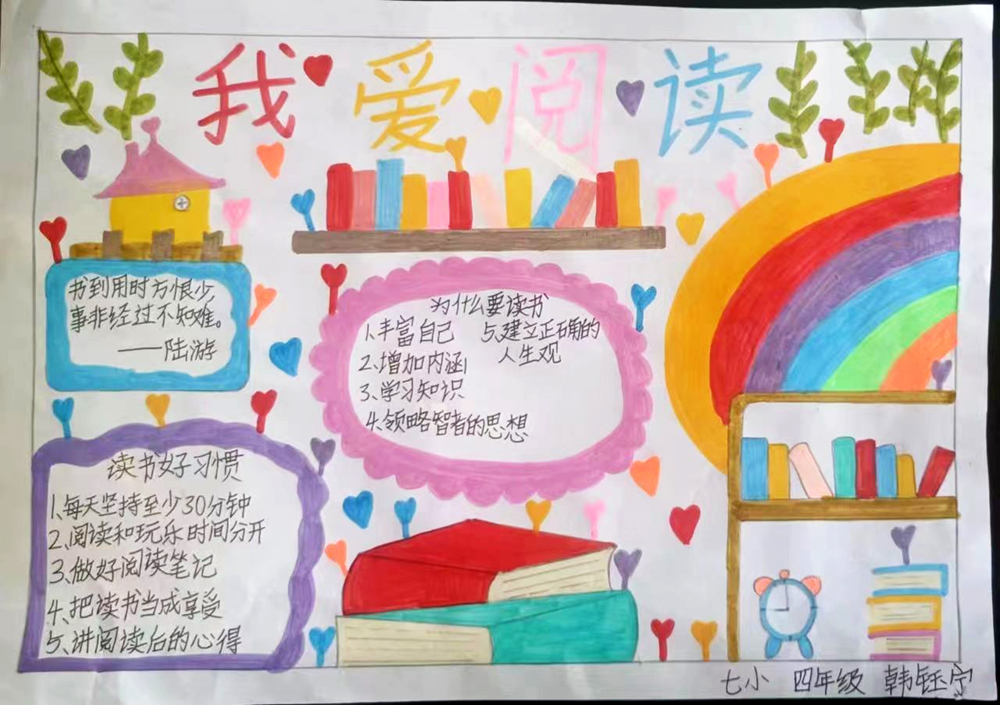 我爱阅读
书到用时方恨少
事非经过不知难。
——陆游
为什么要读书
1.丰富自己
2.增加内涵
3.学习知识
4.领略智者的思想
5.建立正确的
人生观
读书好习惯
1.每天坚持至少30分钟
2.阅读和玩乐时间分开
3.做好阅读笔记
4.把读书当成享受
5.讲阅读后的心得
七小 四年级 韩钰宁